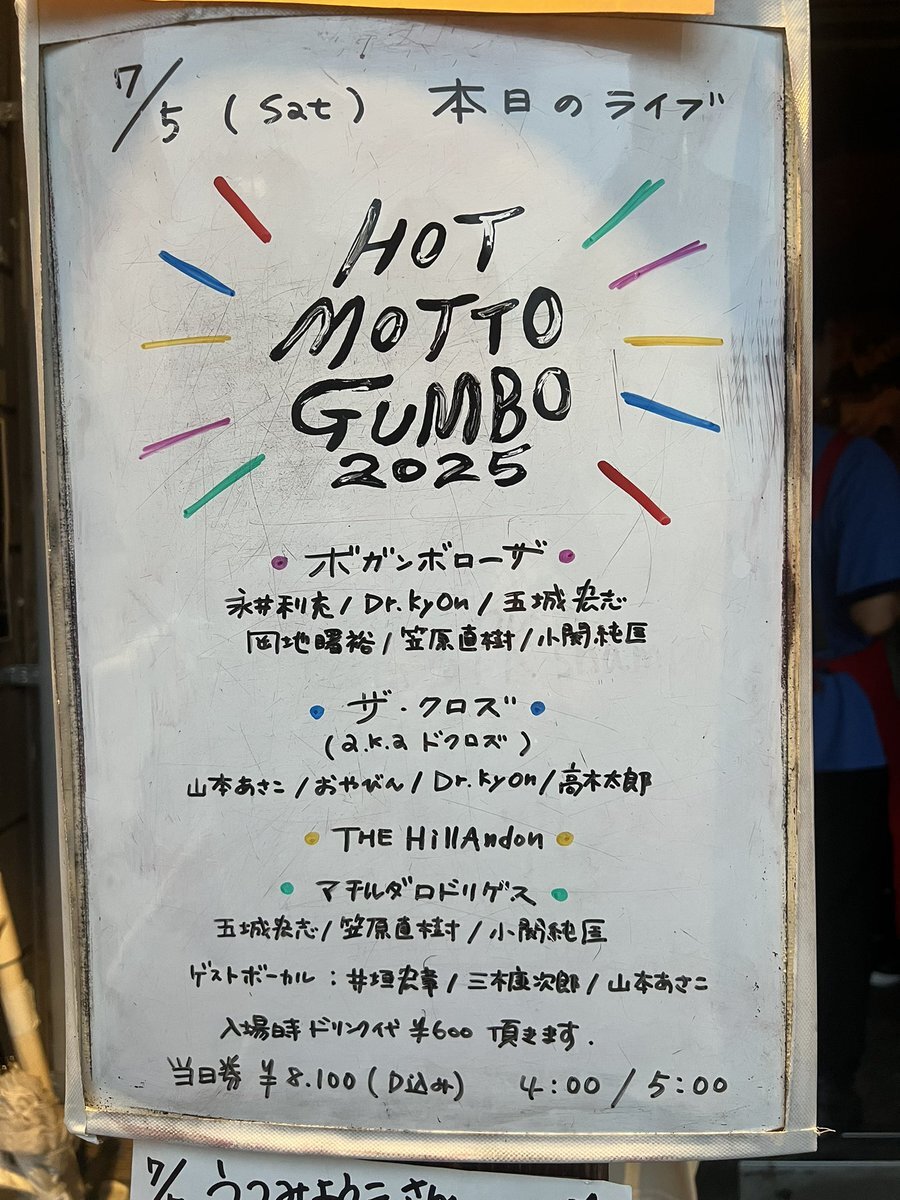 7/5 (Sat) 本日のライブ
HOT
MOTTO
GUMBO
2025
ボガンボローザ
永井利充 / Dr.kyOn / 五城宏志
岡地曙裕 / 笠原直樹 / 小関純匡
ザ・クロズ
(a.k.a ドクロズ)
山本あさこ / おやびん / Dr.kyOn / 高木太郎
THE HillAndon
マチルダロドリゲス
五城宏志 / 笠原直樹 / 小関純匡
ゲストボーカル : 井垣宏章 / 三木康次郎 / 山本あさこ
入場時ドリンク代 ¥600 頂きます.
当日券 ¥8.100 (D込み) 4:00 / 5:00
7/ うつみようこさん